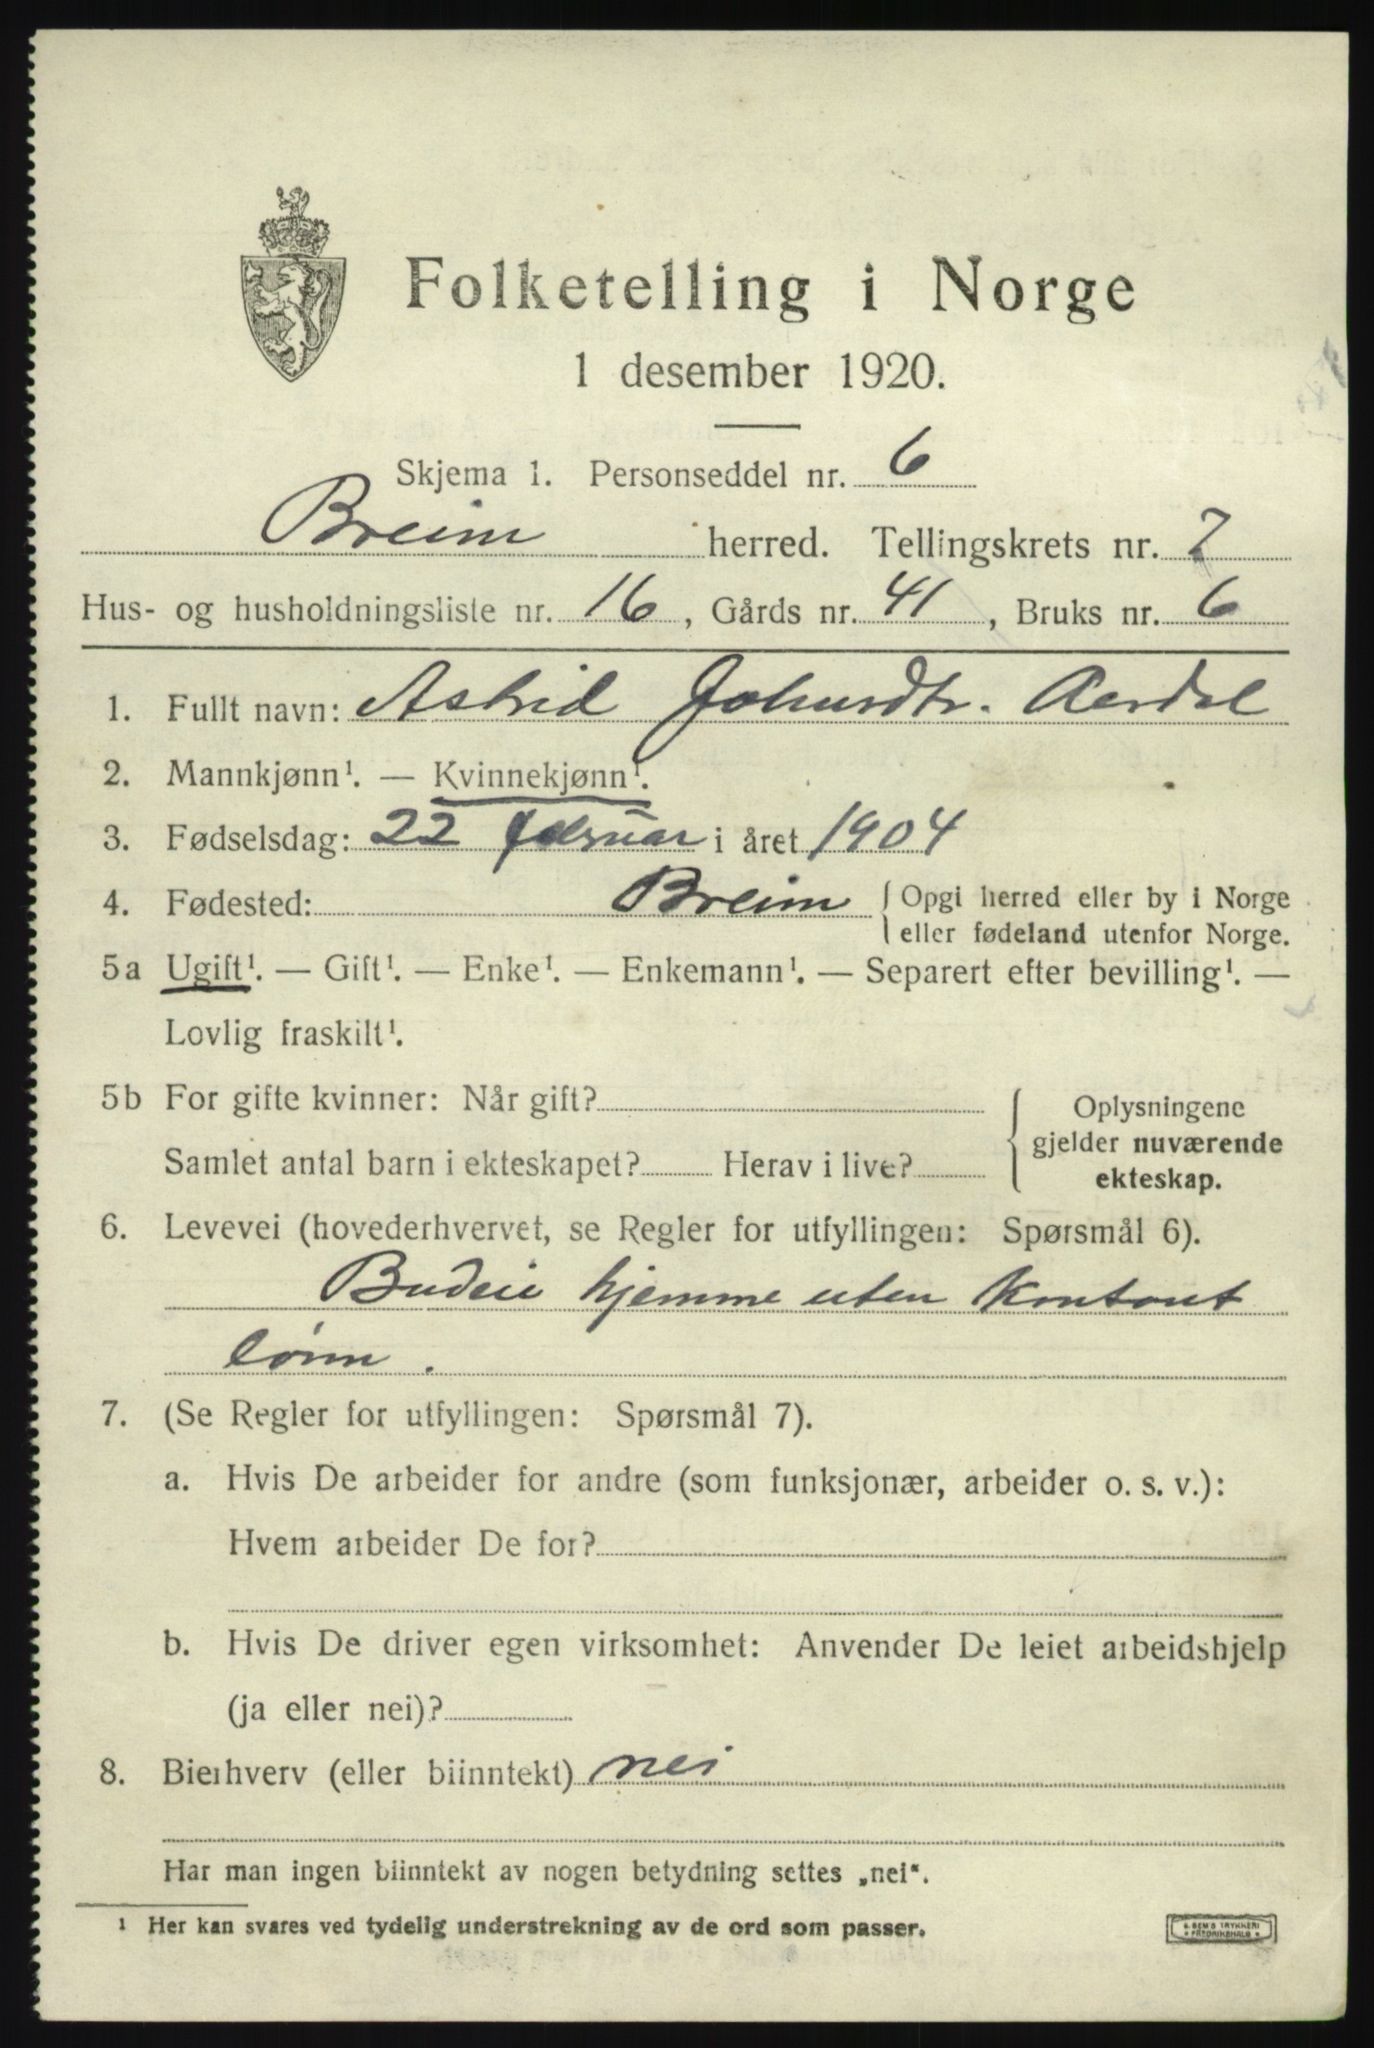 Folketelling i Norge
1 desember 1920.
Skjema 1. Personseddel nr. 6
Breim herred. Tellingskrets nr. 7
Hus- og husholdningsliste nr. 16, Gårds nr. 41, Bruks nr. 6
1. Fullt navn: Astrid Johnsdtr. Aardal
2. Mannkjønn¹. — Kvinnekjønn¹.
3. Fødselsdag: 22 februar i året 1904
4. Fødested: Breim { Opgi herred eller by i Norge
eller fødeland utenfor Norge.
5a Ugift¹. — Gift¹. — Enke¹. — Enkemann¹. — Separert efter bevilling¹. —
Lovlig fraskilt¹.
5b For gifte kvinner: Når gift?
Samlet antal barn i ekteskapet? Herav i live?
{ Oplysningene
gjelder nuværende
ekteskap.
6. Levevei (hovederhvervet, se Regler for utfyllingen: Spørsmål 6).
Budeie hjemme uten kontant
lønn.
7. (Se Regler for utfyllingen: Spørsmål 7).
a. Hvis De arbeider for andre (som funksjonær, arbeider o. s. v.):
Hvem arbeider De for?
b. Hvis De driver egen virksomhet: Anvender De leiet arbeidshjelp
(ja eller nei)?
8. Bierhverv (eller biinntekt) nei
Har man ingen biinntekt av nogen betydning settes „nei“.
¹ Her kan svares ved tydelig understrekning av de ord som passer.
TRYKKERI
FREDRIKSHALD